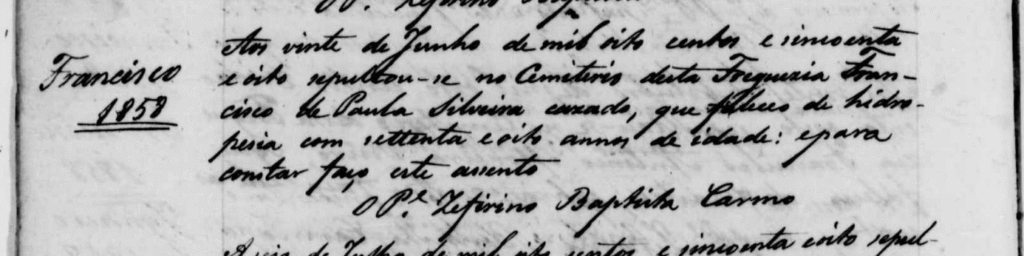 O P.e Zefirino
Aos vinte de Junho de mil oito centos e sincoenta
Francisco
1858
e oito sepultou-se no Cemiterio desta Freguezia Fran-
cisco de Paula Silveira cazado, que faleceo de hidro-
pesia com settenta e oito annos de idade: e para
constar faço este assento
O P.e Zefirino Baptista Carmo
A seis de Julho de mil oito centos e sincoenta e oito sepul-